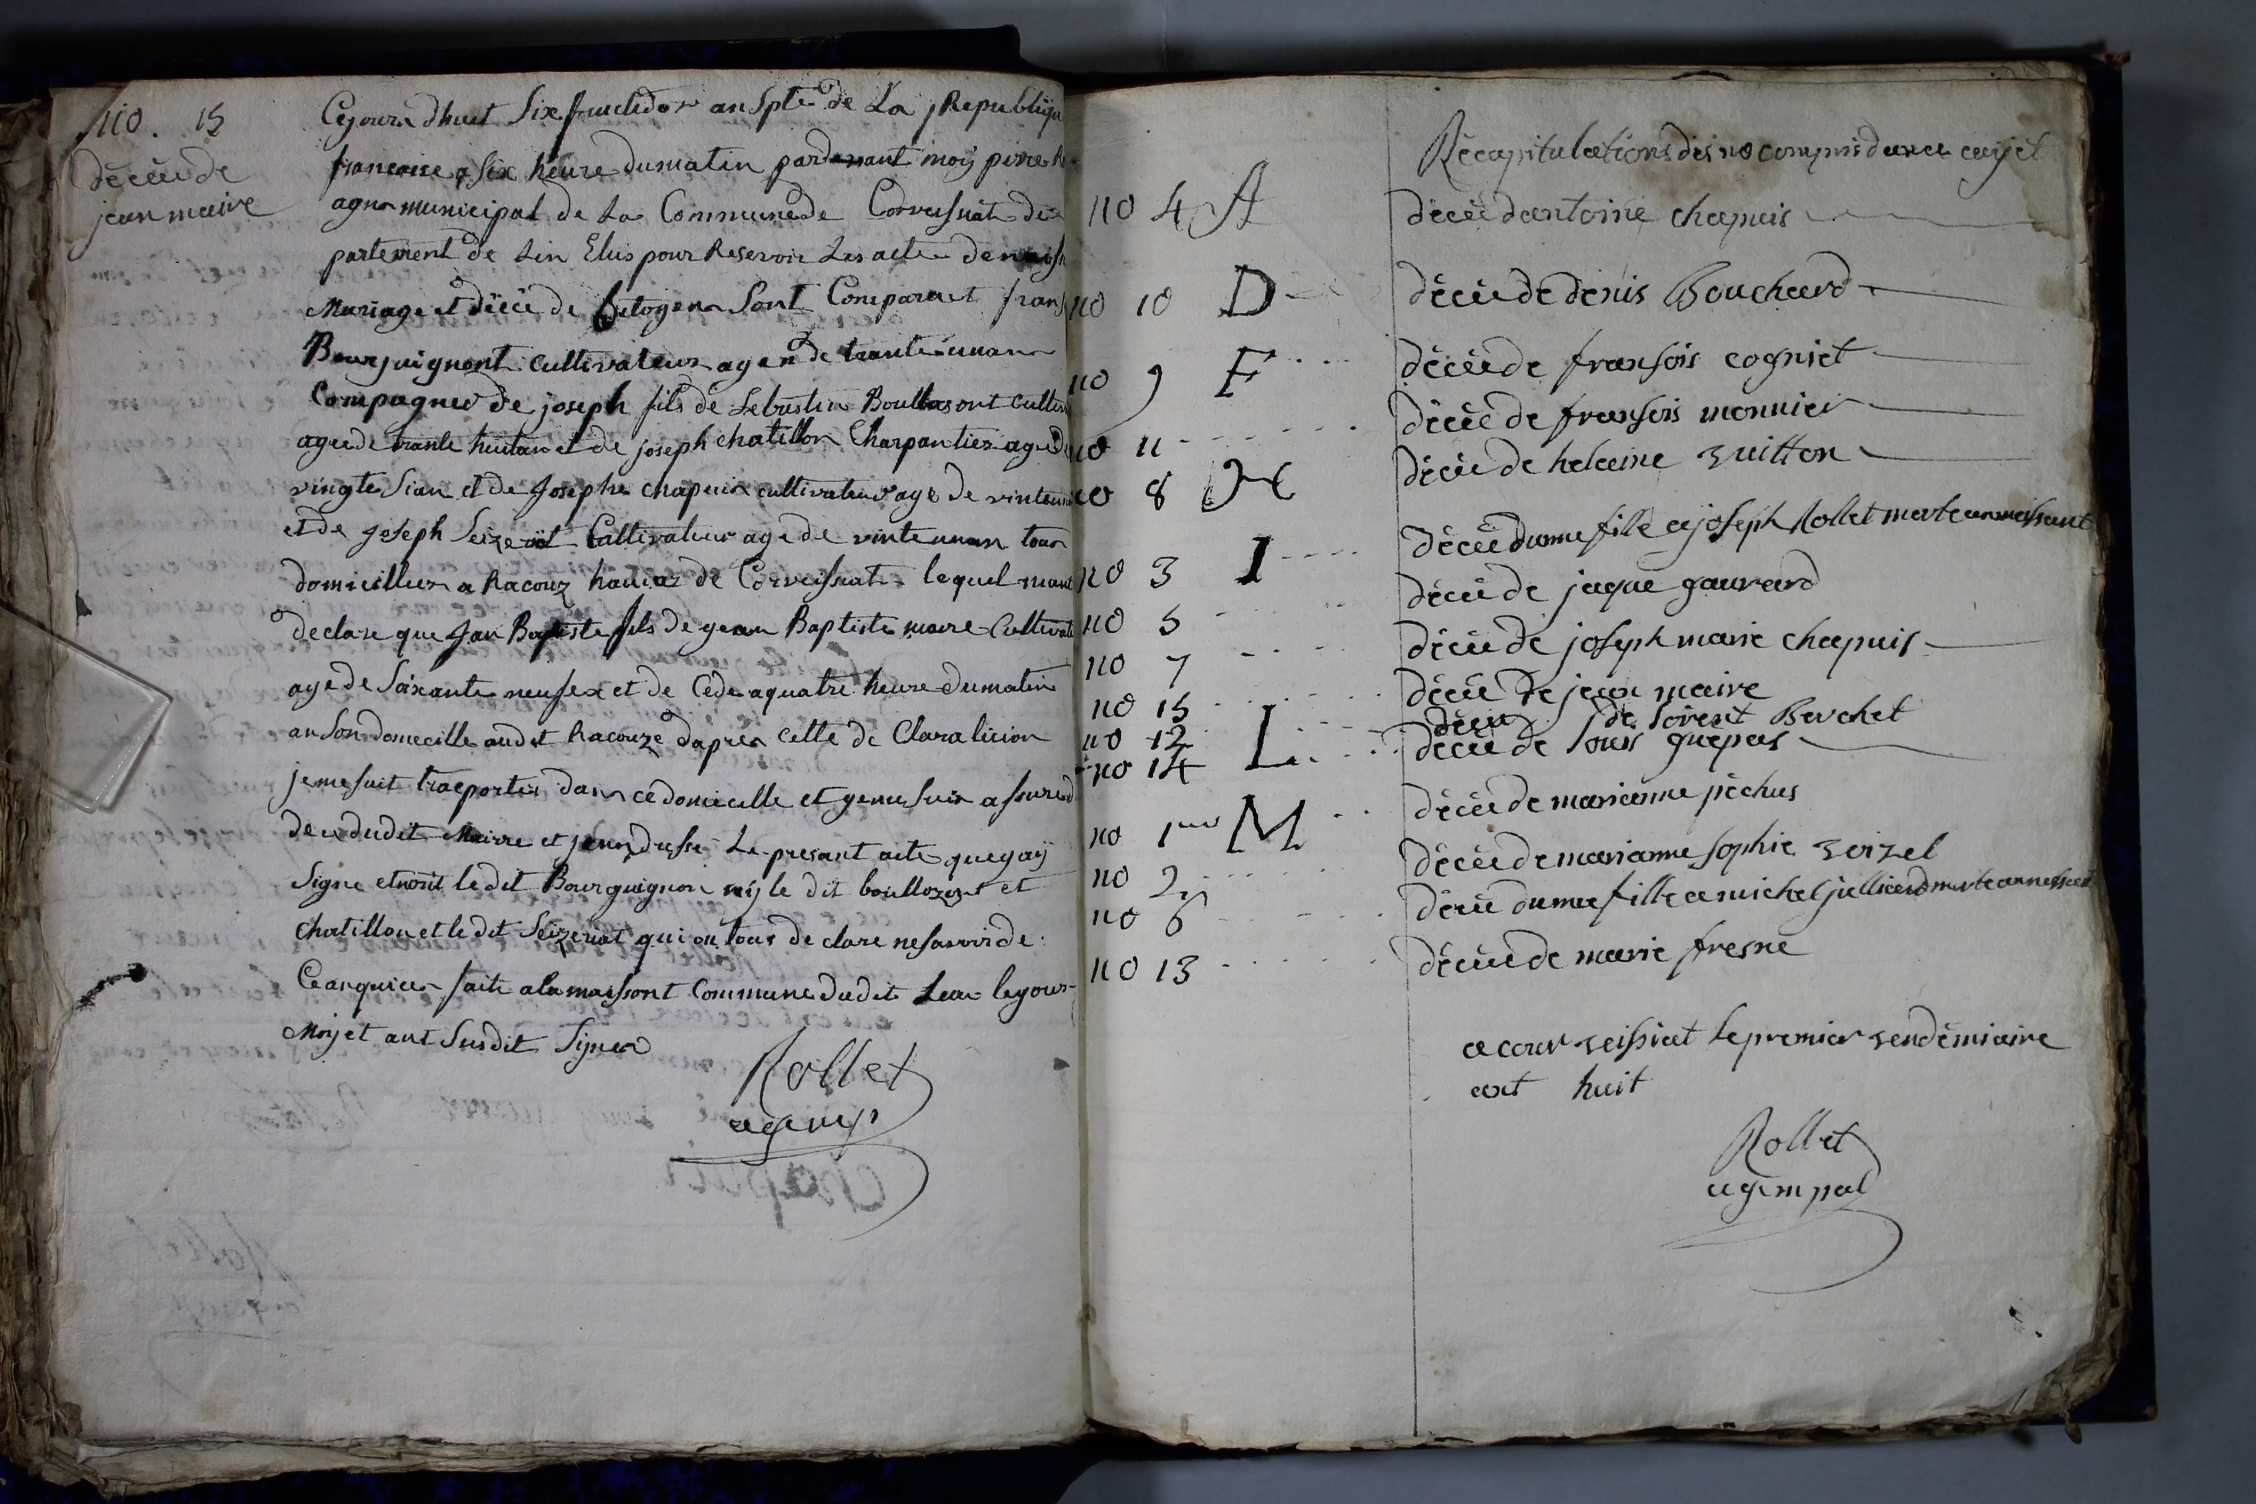 no. 15
décèe de
jean maire
Cejourn dhuit Six fructidor an Spte de La Republiqu
francoise a Six heure dumatin pardevant moy pirre
agen municipal de La Commune de Corveisiat de
partement de Lin Elus pour Reservoir Les acte de naiss
Mariage et décè de Citoyens Sont Comparut frans
Bourguignont cultivateur agen de trante unan
Compagnie de joseph fils de Sebastien Boullosont cultiv
agee de trante huitan et de joseph chatillon Charpantier agé de
vingte Sian et de Josephe chapuis cultivateur agé de vinte
et de Joseph Seizeriat Caltivateur age de vinte unan tous
domicillier a Racouz hamaz de Corveissiat lequel mant
declare que Jan Baptiste fils de gean Baptiste maire Cultivat
age de Soixante neuf et de Céde a quatre heure dumatin
an Son domecille audit Racouze daprer cette de Claralicion
je me suit trasporter dans ce domicille et ge me suis assuré d
de ce dudit Maire et jean dressé Le presant acte que gay
Signe etnont le dit Bourguignon ny le dit boullozont et
Chatillon et le dit Seizeriat qui on tous de clare ne savoir de
Ceanquier fait a la maissont Commune dudit Leux le gour
Moy et ant Susdit Signer
Rollet
agemp
Récapitulations des no compris dance cayet
no 4 A décèe dantoine chapuis
no 10 D décèe de denis Bouchard
no 9 F décèe de fransois cogniet
no 11 décèe de fransois monnier
no 8 H décèe de helaine vuitton
no 3 I décèe dunne fille a joseph Rollet morte an naissant
no 5 décèe de jaque gauvard
no 7 décèe de joseph marie chapuis
no 15 décèe de jean maire
no 12 L décèe de lorent Berchet
no 14 décèe de louis guepas
no 1er M décèe de marianne péchus
no 2 décèe de marianne sophie voizel
no 6 décèe dunne fille a michel julliard morte an nessant
no 13 décèe de marie fresne
a courveissiat le premier vendémiaire
ant huit
Rollet
agempal